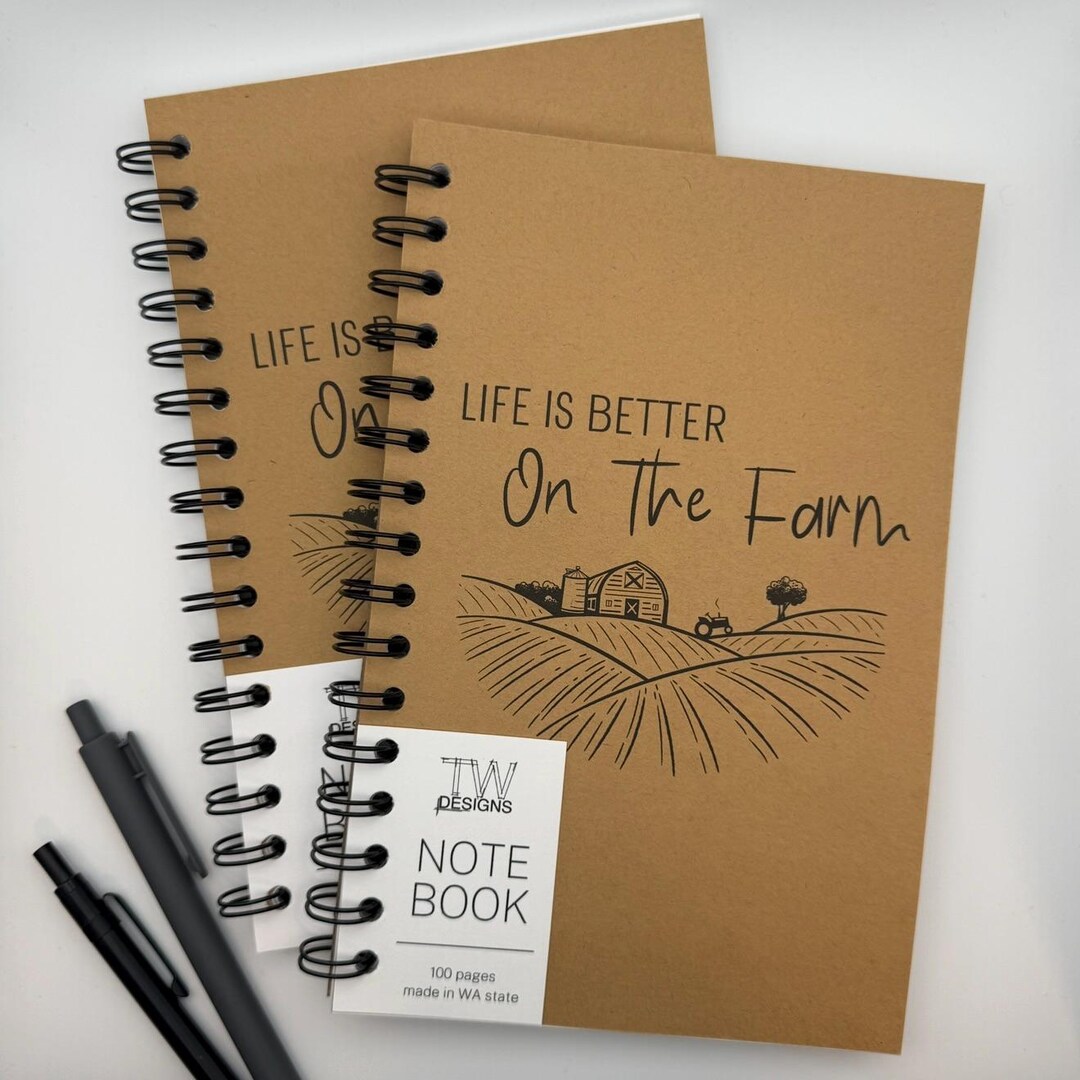 LIFE IS BETTER
On The Farm
TW
DESIGNS
NOTE
BOOK
100 pages
made in WA state
LIFE IS B
On